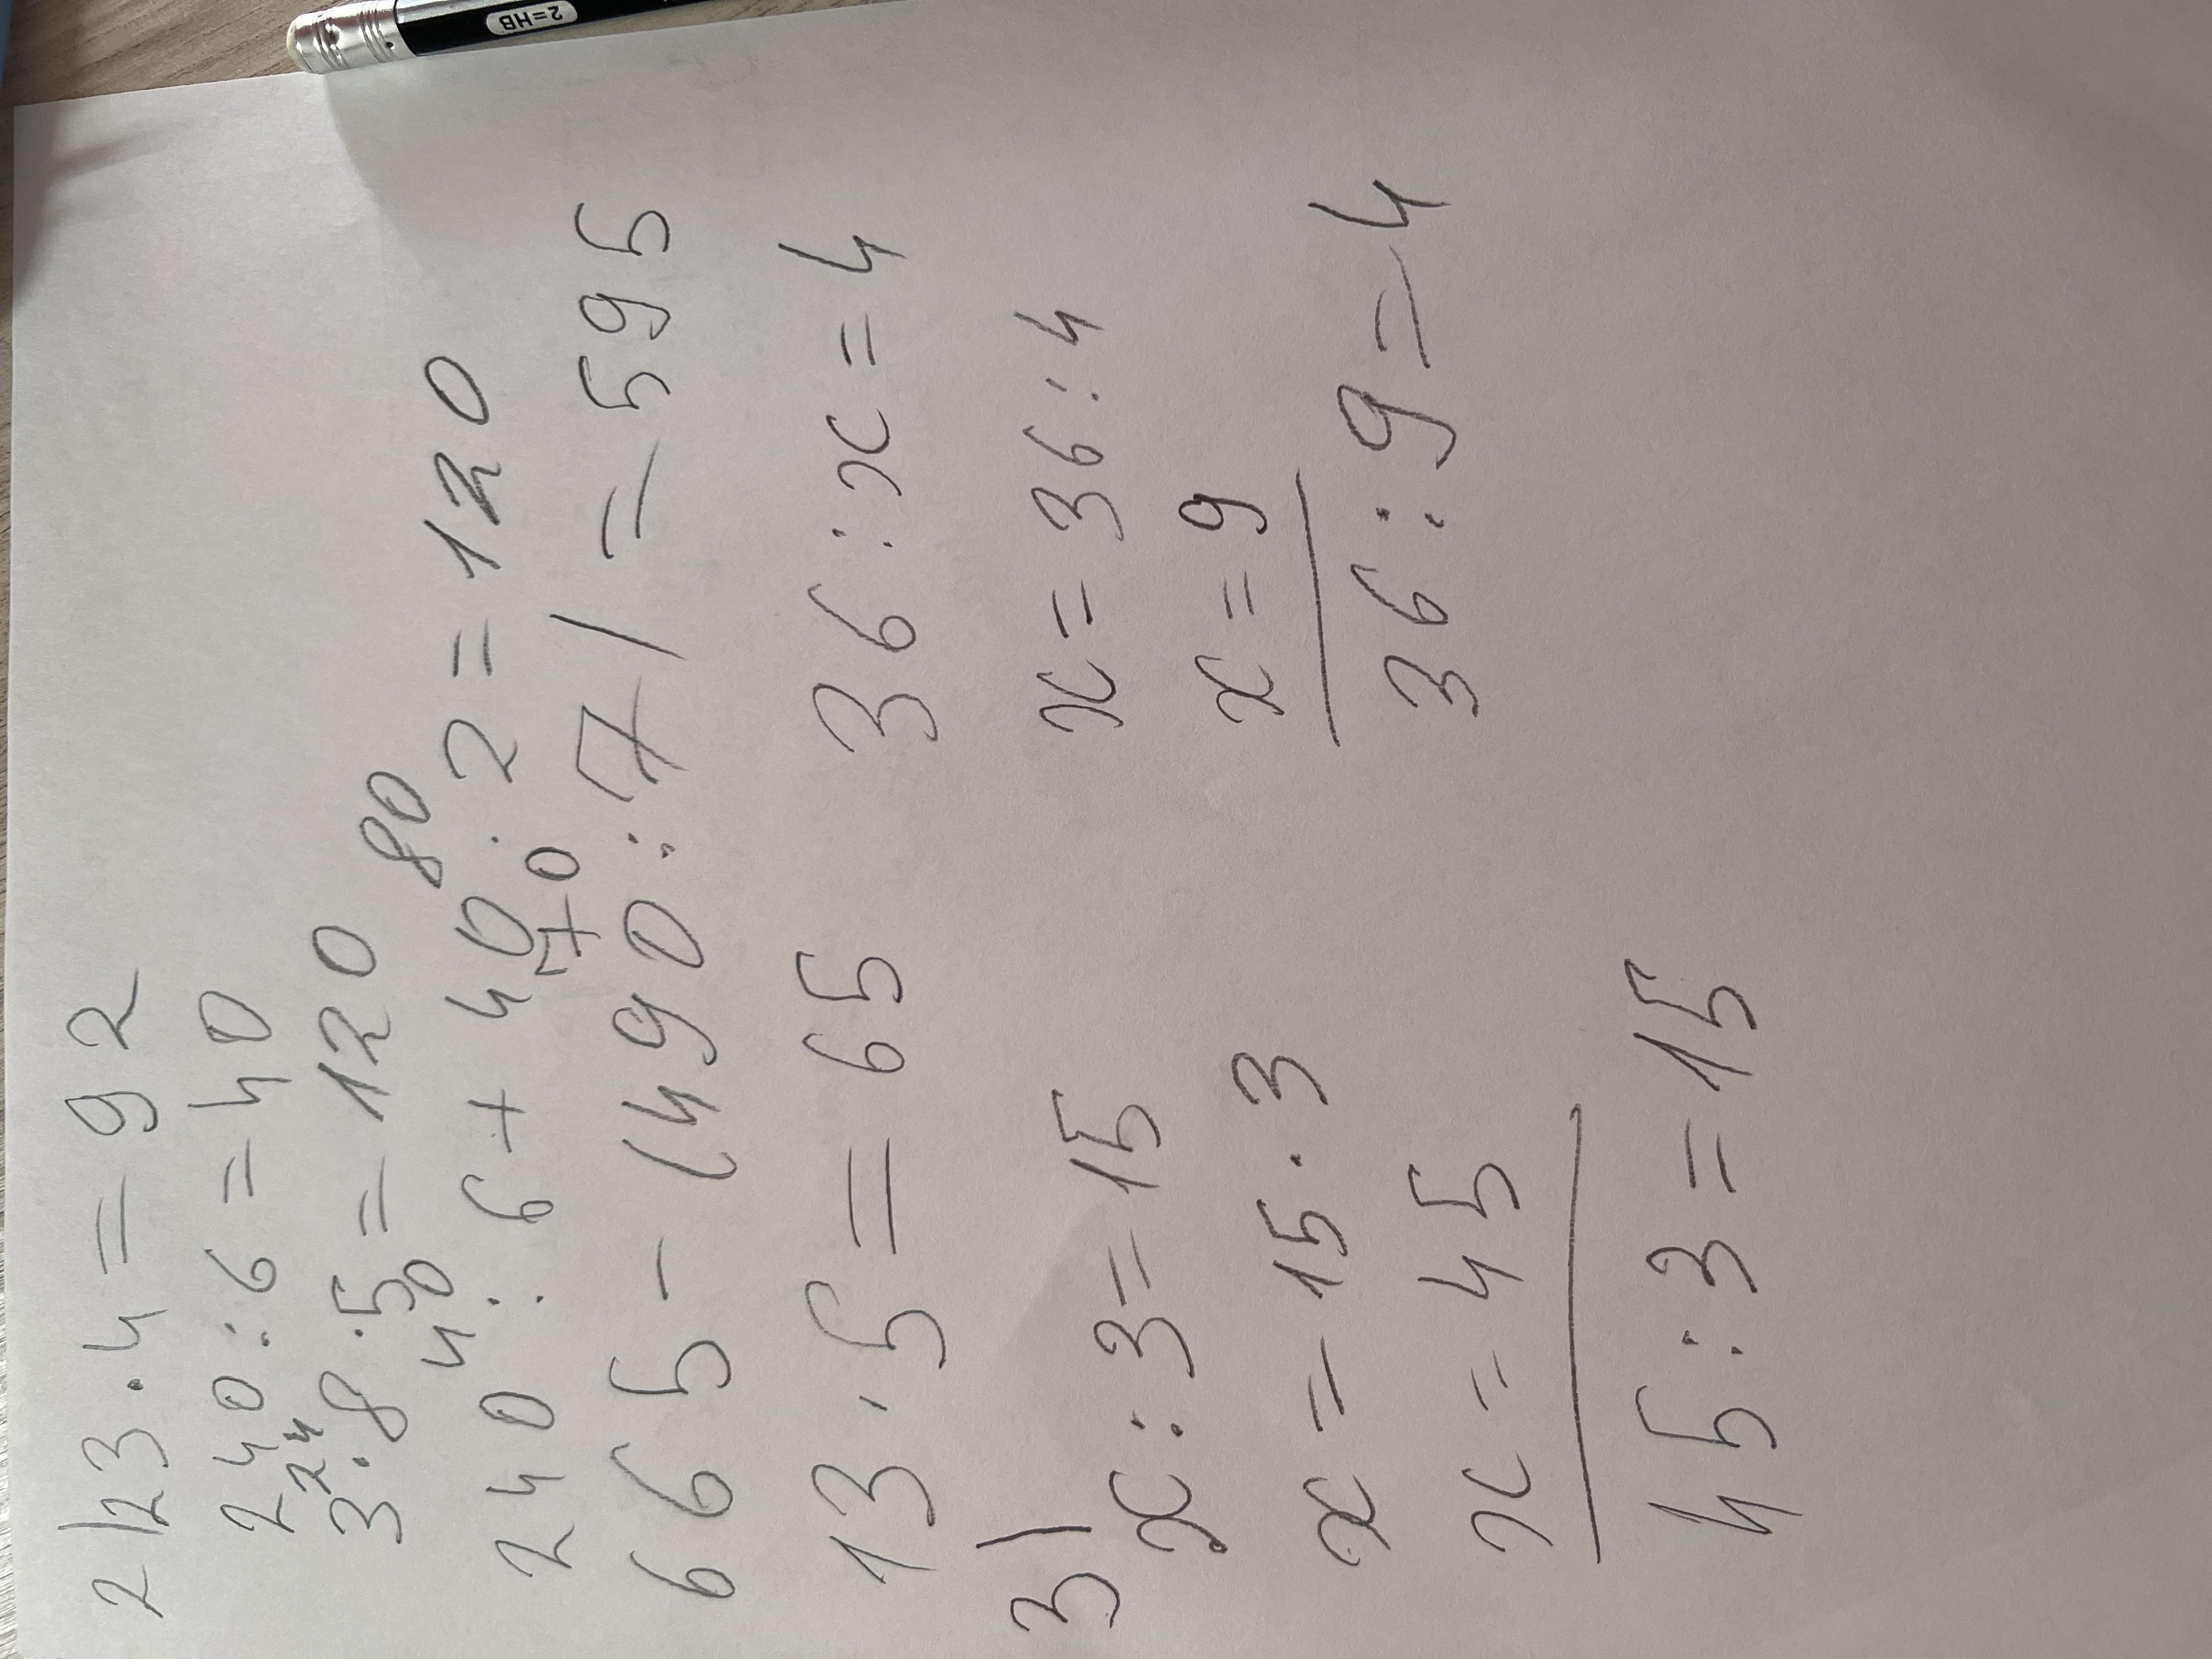 2) 23 · 4 = 92
240 : 6 = 40
24
3 · 8 · 5 = 120
40 80
240 : 6 + 40 · 2 = 120
70
665 - (490 : 7) = 595
13 · 5 = 65
36 : x = 4
x = 36 : 4
x = 9
36 : 9 = 4
3)
x : 3 = 15
x = 15 · 3
x = 45
45 : 3 = 15
2=HB